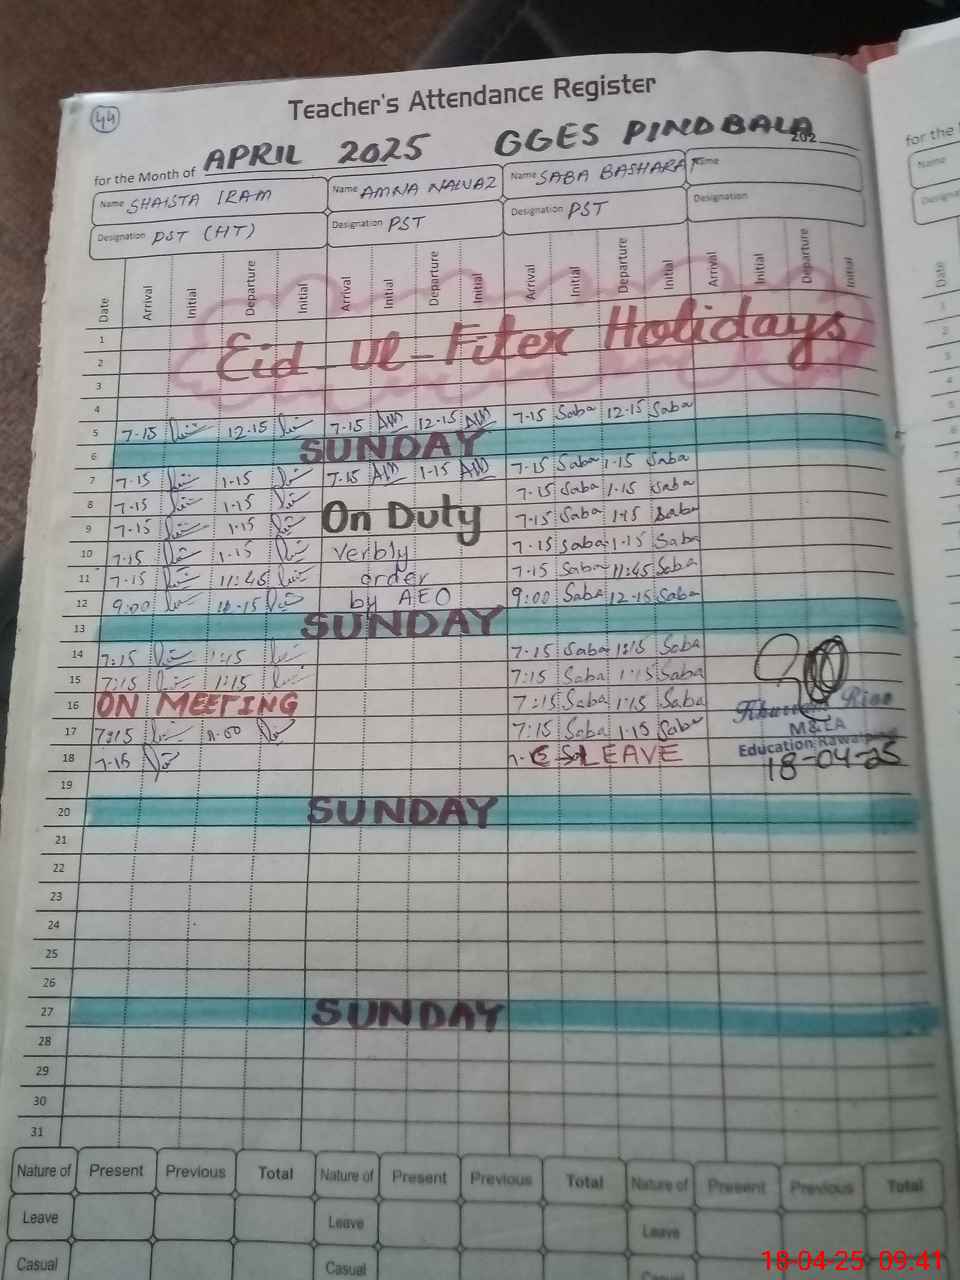 44
Teacher's Attendance Register
for the Month of APRIL 2025 GGES PINDBALA 202
Name SHAISTA IRAM Name AMNA NAWAZ Name SABA BASHARAT Name
Designation PST (HT) Designation PST Designation PST Designation
Date Arrival Initial Departure Initial Arrival Initial Departure Initial Arrival Initial Departure Initial Arrival Initial Departure Initial
1
2 Eid-Ul-Fiter Holidays
3
4
5 7-15 12-15 7-15 AM 12-15 AM 7-15 Saba 12-15 Saba
6 SUNDAY
7 7-15 1-15 7-15 AM 1-15 AM 7-15 Saba 1-15 Saba
8 7-15 1-15 7-15 Saba 1-15 Saba
9 7-15 1-15 On Duty 7-15 Saba 1-15 Saba
10 7-15 1-15 verbly 7-15 Saba 1-15 Saba
11 7-15 11:45 order 7-15 Saba 11:45 Saba
12 9:00 12-15 by AEO 9:00 Saba 12-15 Saba
13 SUNDAY
14 7:15 1:15 7-15 Saba 1:15 Saba
15 7:15 1:15 7:15 Saba 1:15 Saba
16 ON MEETING 7:15 Saba 1:15 Saba
17 7:15 7:15 Saba 1-15 Saba
18 7-15 LEAVE
M&EA
Education Rawalpindi
18-04-25
19
20 SUNDAY
21
22
23
24
25
26
27 SUNDAY
28
29
30
31
Nature of Present Previous Total Nature of Present Previous Total Nature of Present Previous Total
Leave Leave Leave
Casual Casual Casual
18-04-25 09:41